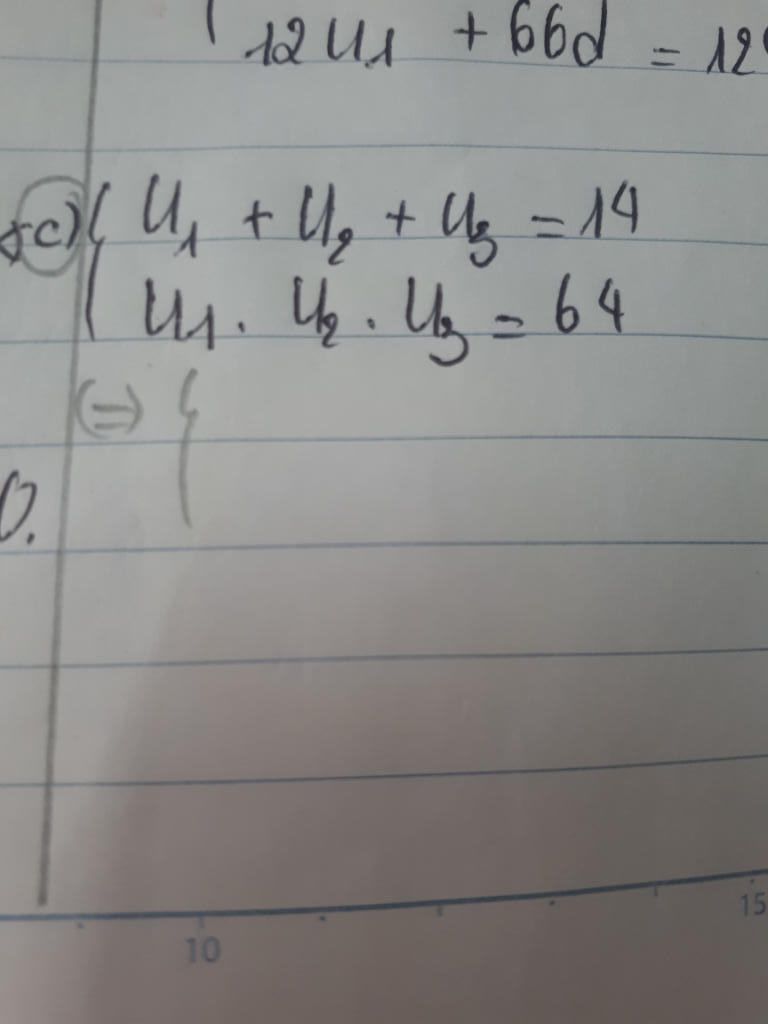 12u1 + 66d = 12
c) { u1 + u2 + u3 = 14
u1 . u2 . u3 = 64
(=) {
0.
10 15